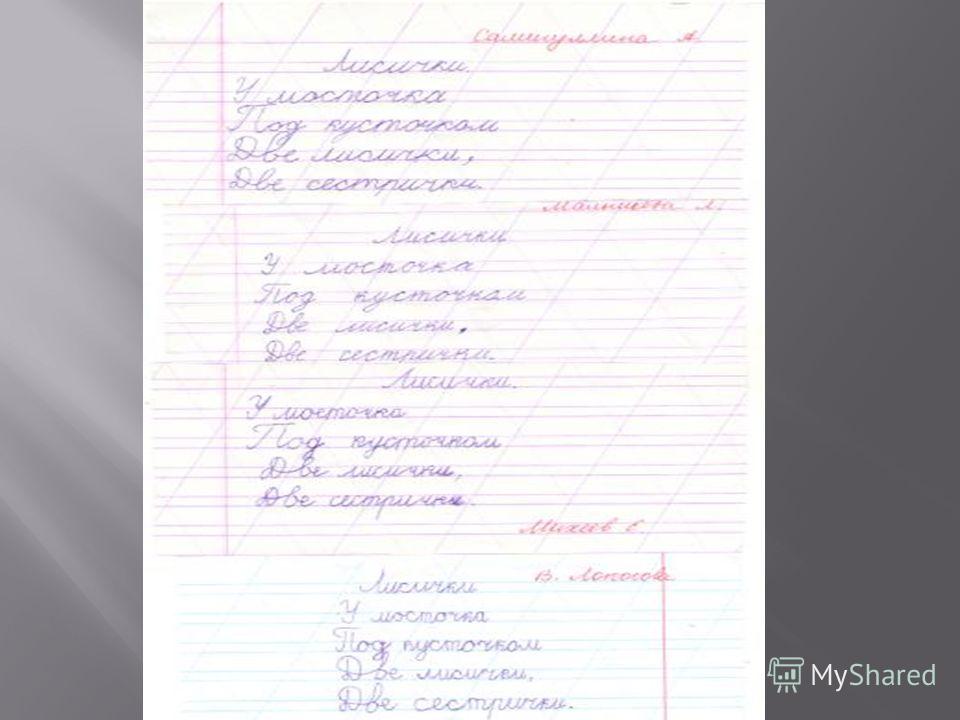 Самигуллина А.
Лисички.
У мосточка
Под кусточком
Две лисички,
Две сестрички.
Л.
Лисички
У мосточка
Под кусточкам
Две лисички.
Две сестрички.
Лисички.
У мосточка
Под кусточком
Две лисички,
Две сестрички.
Михеев С.
В. Лопогова
Лисички
У мосточка
Под кусточком
Две лисички,
Две сестрички.
MyShared